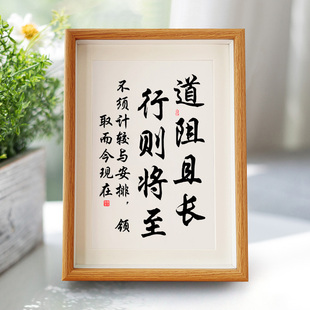 道阻且长
行则将至
不须计较与安排，领
取而今现在